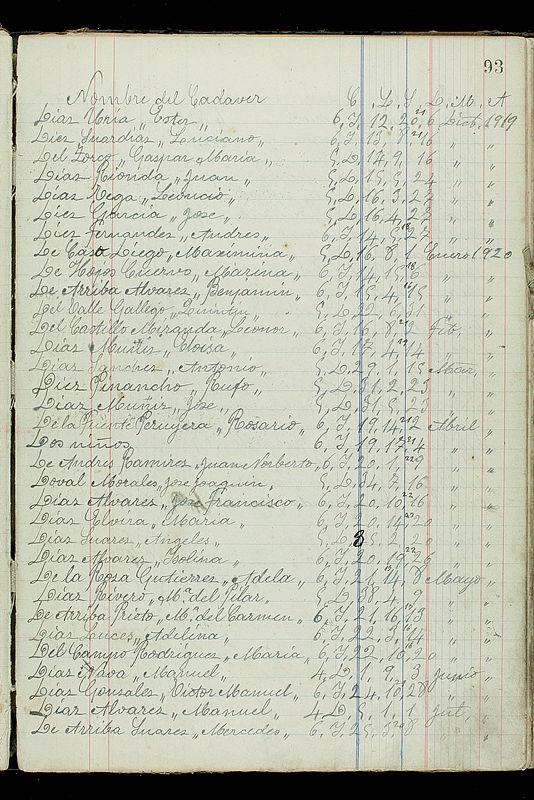 93
Nombre del Cadaver C. L. S. D. M. A
Díaz Uria „ Ester „ 6, I, 12, 20, 6 Dicb, 1919
Díez Guardias „ Luciano „ 6, I, 13, 8, 16 „ „
Del Zorco „ Gaspar Maria „ 5, D, 14, 9, 16 „ „
Díaz Rionda „ Juan „ 5, D, 15, 5, 24 „ „
Díaz Vega „ Leoncio „ 5, D, 16, 3, 27 „ „
Díez García „ Jose „ 5, D, 16, 4, 27 „ „
Díez Fernandez „ Andres „ 6, I, 14, 5, 27 „ „
De Caso Diego „ Maximina „ 5, D, 16, 8, 1 Enero 1920
De Hoyos Cuervo „ Marina „ 6, I, 14, 15, 6 „ „
De Arriba Alvarez „ Benjamin „ 6, I, 15, 4, 15 „ „
Del Valle Gallego „ Quintin „ 5, D, 22, 6, 31 „ „
Del Castillo Miranda „ Leonor „ 6, I, 16, 8, 2 Feb, „
Díaz Muñiz „ Eloisa „ 6, I, 17, 4, 14 „ „
Díaz Sanchez „ Antonio „ 5, D, 29, 1, 15 Mar, „
Díez Pinancho „ Rufo „ 5, D, 31, 2, 23 „ „
Díaz Muñiz „ Jose „ 5, D, 31, 5, 23 „ „
De la Puente Perujera „ Rosario „ 6, I, 19, 14, 2 Abril „
Dos niños 6, I, 19, 17, 4 „ „
De Andres Ramirez „ Juan Norberto „ 6, I, 20, 1, 9 „ „
Doval Morales, Jose Joaquin, 5, D, 34, 7, 16 „ „
Díaz Alvarez „ Jose Francisco „ 6, I, 20, 10, 16 „ „
Díaz Elvira „ Maria „ 6, I, 20, 14, 20 „ „
Díaz Suarez „ Angeles „ 5, D, 35, 2, 20 „ „
Díaz Alvarez „ Isolina „ 6, I, 20, 19, 26 „ „
De la Rosa Gutierrez „ Adela „ 6, I, 21, 14, 8 Mayo „
Díaz Rivero „ Mª del Pilar „ 5, D, 38, 4, 9 „ „
De Arriba Prieto „ Mª del Carmen „ 6, I, 21, 16, 13 „ „
Díaz Luces „ Adelina „ 6, I, 22, 3, 14 „ „
Del Campo Rodriguez „ Maria „ 6, I, 22, 16, 20 „ „
Díaz Nava „ Manuel „ 4, D, 1, 9, 3 Junio „
Díaz Gonzalez „ Victor Manuel „ 6, I, 24, 10, 28 „ „
Díaz Alvarez „ Manuel „ 4, D, 5, 1, 1 Jul, „
De Arriba Suarez „ Mercedes „ 6, I, 25, 3, 8 „ „